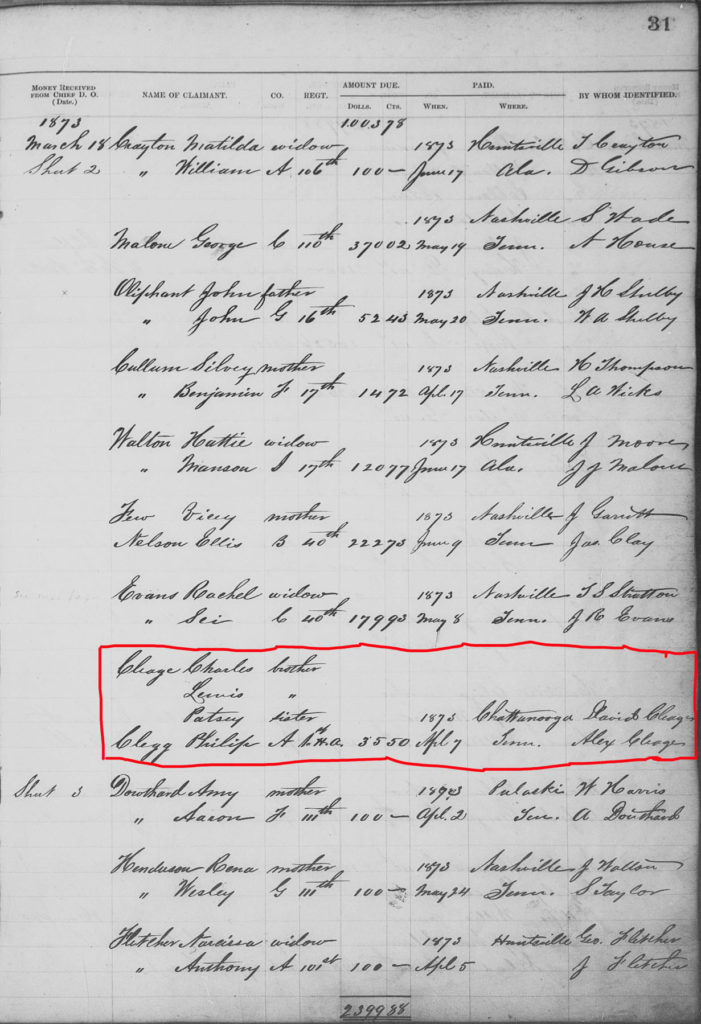 31
MONEY RECEIVED FROM CHIEF D. O. (Date.) NAME OF CLAIMANT. CO. REGT. AMOUNT DUE. DOLLS. CTS. PAID. WHEN. WHERE. BY WHOM IDENTIFIED.
1873 1003 78
March 18 Crayton Matilda widow 1873 Huntsville T Crayton
Shut 2 " William A 106th 100 — June 17 Ala. D Gibson
1873 Nashville S Wade
Malone George C 110th 370 02 May 19 Tenn. N House
Oliphant John father 1873 Nashville J H Shelby
" John G 16th 52 43 May 20 Tenn. W A Shelby
Cullum Silvey mother 1873 Nashville H Thompson
" Benjamin F 17th 14 72 Apl. 17 Tenn. L A Wicks
Walton Hattie widow 1873 Huntsville J Moore
" Manson I 17th 120 77 June 17 Ala. J J Malone
Few Vicey mother 1873 Nashville J Garrett
Nelson Ellis B 40th 222 73 June 9 Tenn Jas. Clay
Evans Rachel widow 1873 Nashville T S Stratton
" Sei C 40th 179 93 May 8 Tenn. J R Evans
Cleage Charles brother
Lewis "
Patsey sister 1873 Chattanooga David Cleage
Clegg Philip A 1st H.A. 35 50 Apl 7 Tenn. Alex Cleage
Shut 3 Douthard Amy mother 1873 Pulaski W Harris
" Aaron F 111th 100 — Apl. 2 Ten. A Douthard
Henderson Rena mother 1873 Nashville J Walton
" Wesley G 111th 100 — May 24 Tenn. S Taylor
Fletcher Narcissa widow 1873 Huntsville Geo. Fletcher
" Anthony A 101st 100 — Apl 5 J Fletcher
2399 88